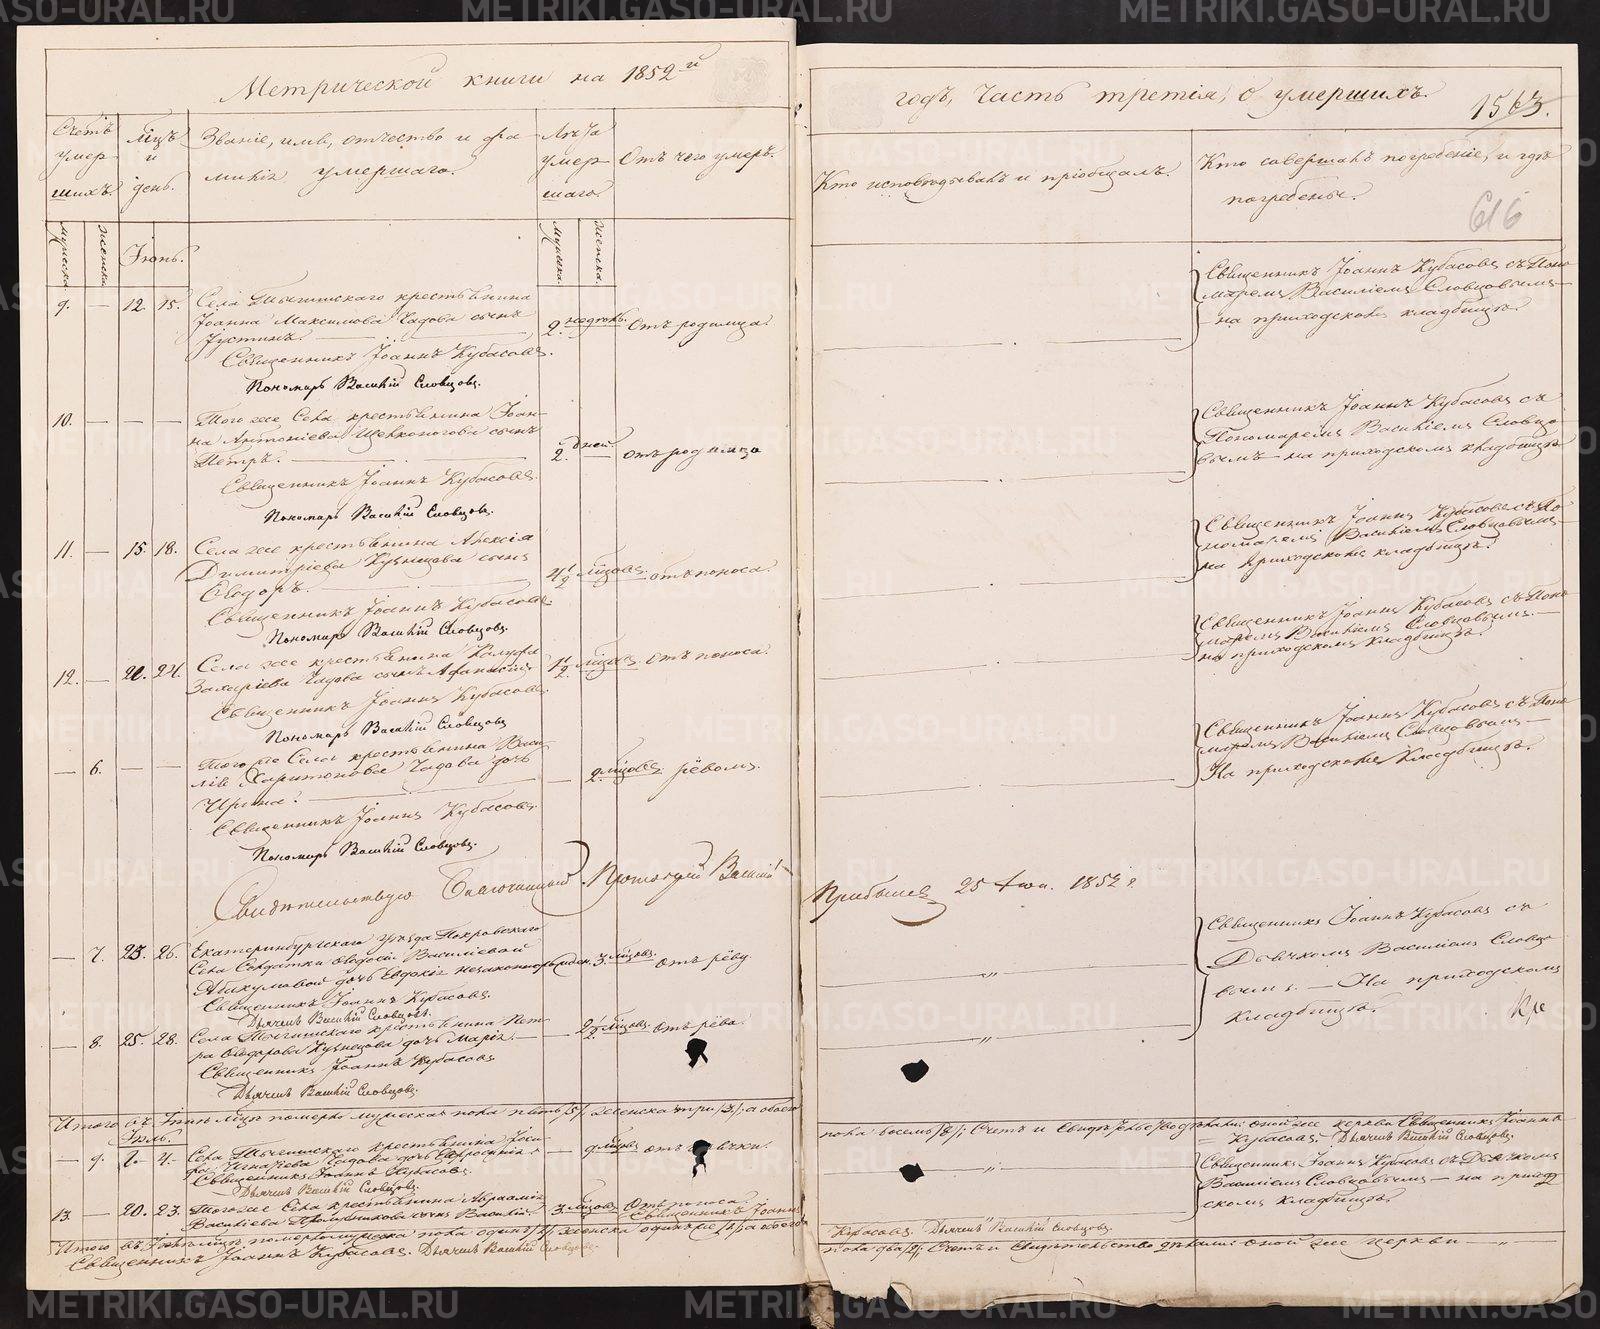 Метрической книги на 1852й
годъ, Часть третія, о умершихъ.
1563.
616
Счетъ умершихъ.
Мцъ и день.
Званіе, имя, отчество и фамилія умершаго.
Лѣта умершаго.
Отъ чего умеръ.
Кто исповѣдывалъ и пріобщалъ.
Кто совершалъ погребеніе, и гдѣ
погребены.
мужеска
женска
Іюнь.
мужска.
женска.
9. — 12. 15.
крестьянина
Іоанна Максимова Чадова сынъ
Іустинъ.
2 недѣль. Отъ родимца.
Священникъ Іоаннъ Кубасовъ.
Пономарь Василій Словцовъ.
Священникъ Іоаннъ Кубасовъ съ Поно-
маремъ Василіемъ Словцовымъ
на приходскомъ кладбищѣ.
10. — — —
Того же Села крестьянина Іоан-
на Антоніева сынъ
Петръ.
2 дней. отъ родимца
Священникъ Іоаннъ Кубасовъ.
Пономарь Василій Словцовъ.
Священникъ Іоаннъ Кубасовъ съ
Пономаремъ Василіемъ Словцо-
вымъ на приходскомъ кладбищѣ
11. — 15. 18.
Села же крестьянина Алексія
Димитріева Кузнецова сынъ
Ѳеодоръ.
4 1/2 мцовъ. отъ поноса.
Священникъ Іоаннъ Кубасовъ.
Пономарь Василій Словцовъ.
Священникъ Іоаннъ Кубасовъ съ По-
номаремъ Василіемъ Словцовымъ
на приходскомъ кладбищѣ.
12. — 21. 24.
Села же крестьянина
Захаріева Чадова сынъ Афанасій
1 1/2 мцъ. отъ поноса.
Священникъ Іоаннъ Кубасовъ.
Пономарь Василій Словцовъ
Священникъ Іоаннъ Кубасовъ съ Поно-
маремъ Василіемъ Словцовымъ.
на приходскомъ кладбищѣ.
— 6. — —
Того же Села крестьянина Васи-
лія Харитонова Чадова дочь
Ирина.
2 мцовъ. рёвомъ.
Священникъ Іоаннъ Кубасовъ.
Пономарь Василій Словцовъ.
Священникъ Іоаннъ Кубасовъ съ Поно-
маремъ Василіемъ Словцовымъ
На приходскомъ Кладбищѣ.
Свидѣтельствую Благочинный Протоіерей Василій
Прибылевъ 25 Іюн. 1852 г.
— 7. 23. 26.
Екатеринбургскаго уѣзда Покровскаго
Села Солдатки Ѳеодосіи Василіевой
Абакумовой дочь Евдокія незаконнорожден. 3 мцовъ. отъ рёву.
Священникъ Іоаннъ Кубасовъ.
Дьячекъ Василій Словцовъ.
Священникъ Іоаннъ Кубасовъ съ
Дьячкомъ Василіемъ Словцо-
вымъ. — На приходскомъ
кладбищѣ.
— 8. 25. 28.
крестьянина Пет-
ра Ѳеодорова Кузнецова дочь Марія.
2 1/2 мцовъ. отъ рёва.
Священникъ Іоаннъ Кубасовъ
Дьячекъ Василій Словцовъ.
Итого въ Іюнѣ мцѣ померло мужеска пола пять /5/, женска три /3/, а обоего
пола восемь /8/; Счетъ и же церкви Священникъ Іоаннъ
Кубасовъ. Дьячекъ Василій Словцовъ.
Іюль.
— 9. 1. 4.
крестьянина
Игнатіева Чадова дочь
Священникъ Іоаннъ Кубасовъ.
Дьячекъ Василій Словцовъ.
9 мцовъ отъ
Священникъ Іоаннъ Кубасовъ съ Дьячкомъ
Василіемъ Словцовымъ — на приход-
скомъ кладбищѣ.
13. — 20. 23.
Того же Села крестьянина Авраамія
Василіева сынъ Василій.
3 мцовъ Отъ поноса
Священникъ Іоаннъ
Кубасовъ. Дьячекъ Василій Словцовъ.
Итого въ Іюлѣ мцѣ померло мужеска пола одинъ /1/, женска одинъ же /1/, а обоего
пола два /2/; Счетъ и Свидѣтельство дѣлали оной же церкви
Священникъ Іоаннъ Кубасовъ. Дьячекъ Василій Словцовъ.
METRIKI.GASO-URAL.RU